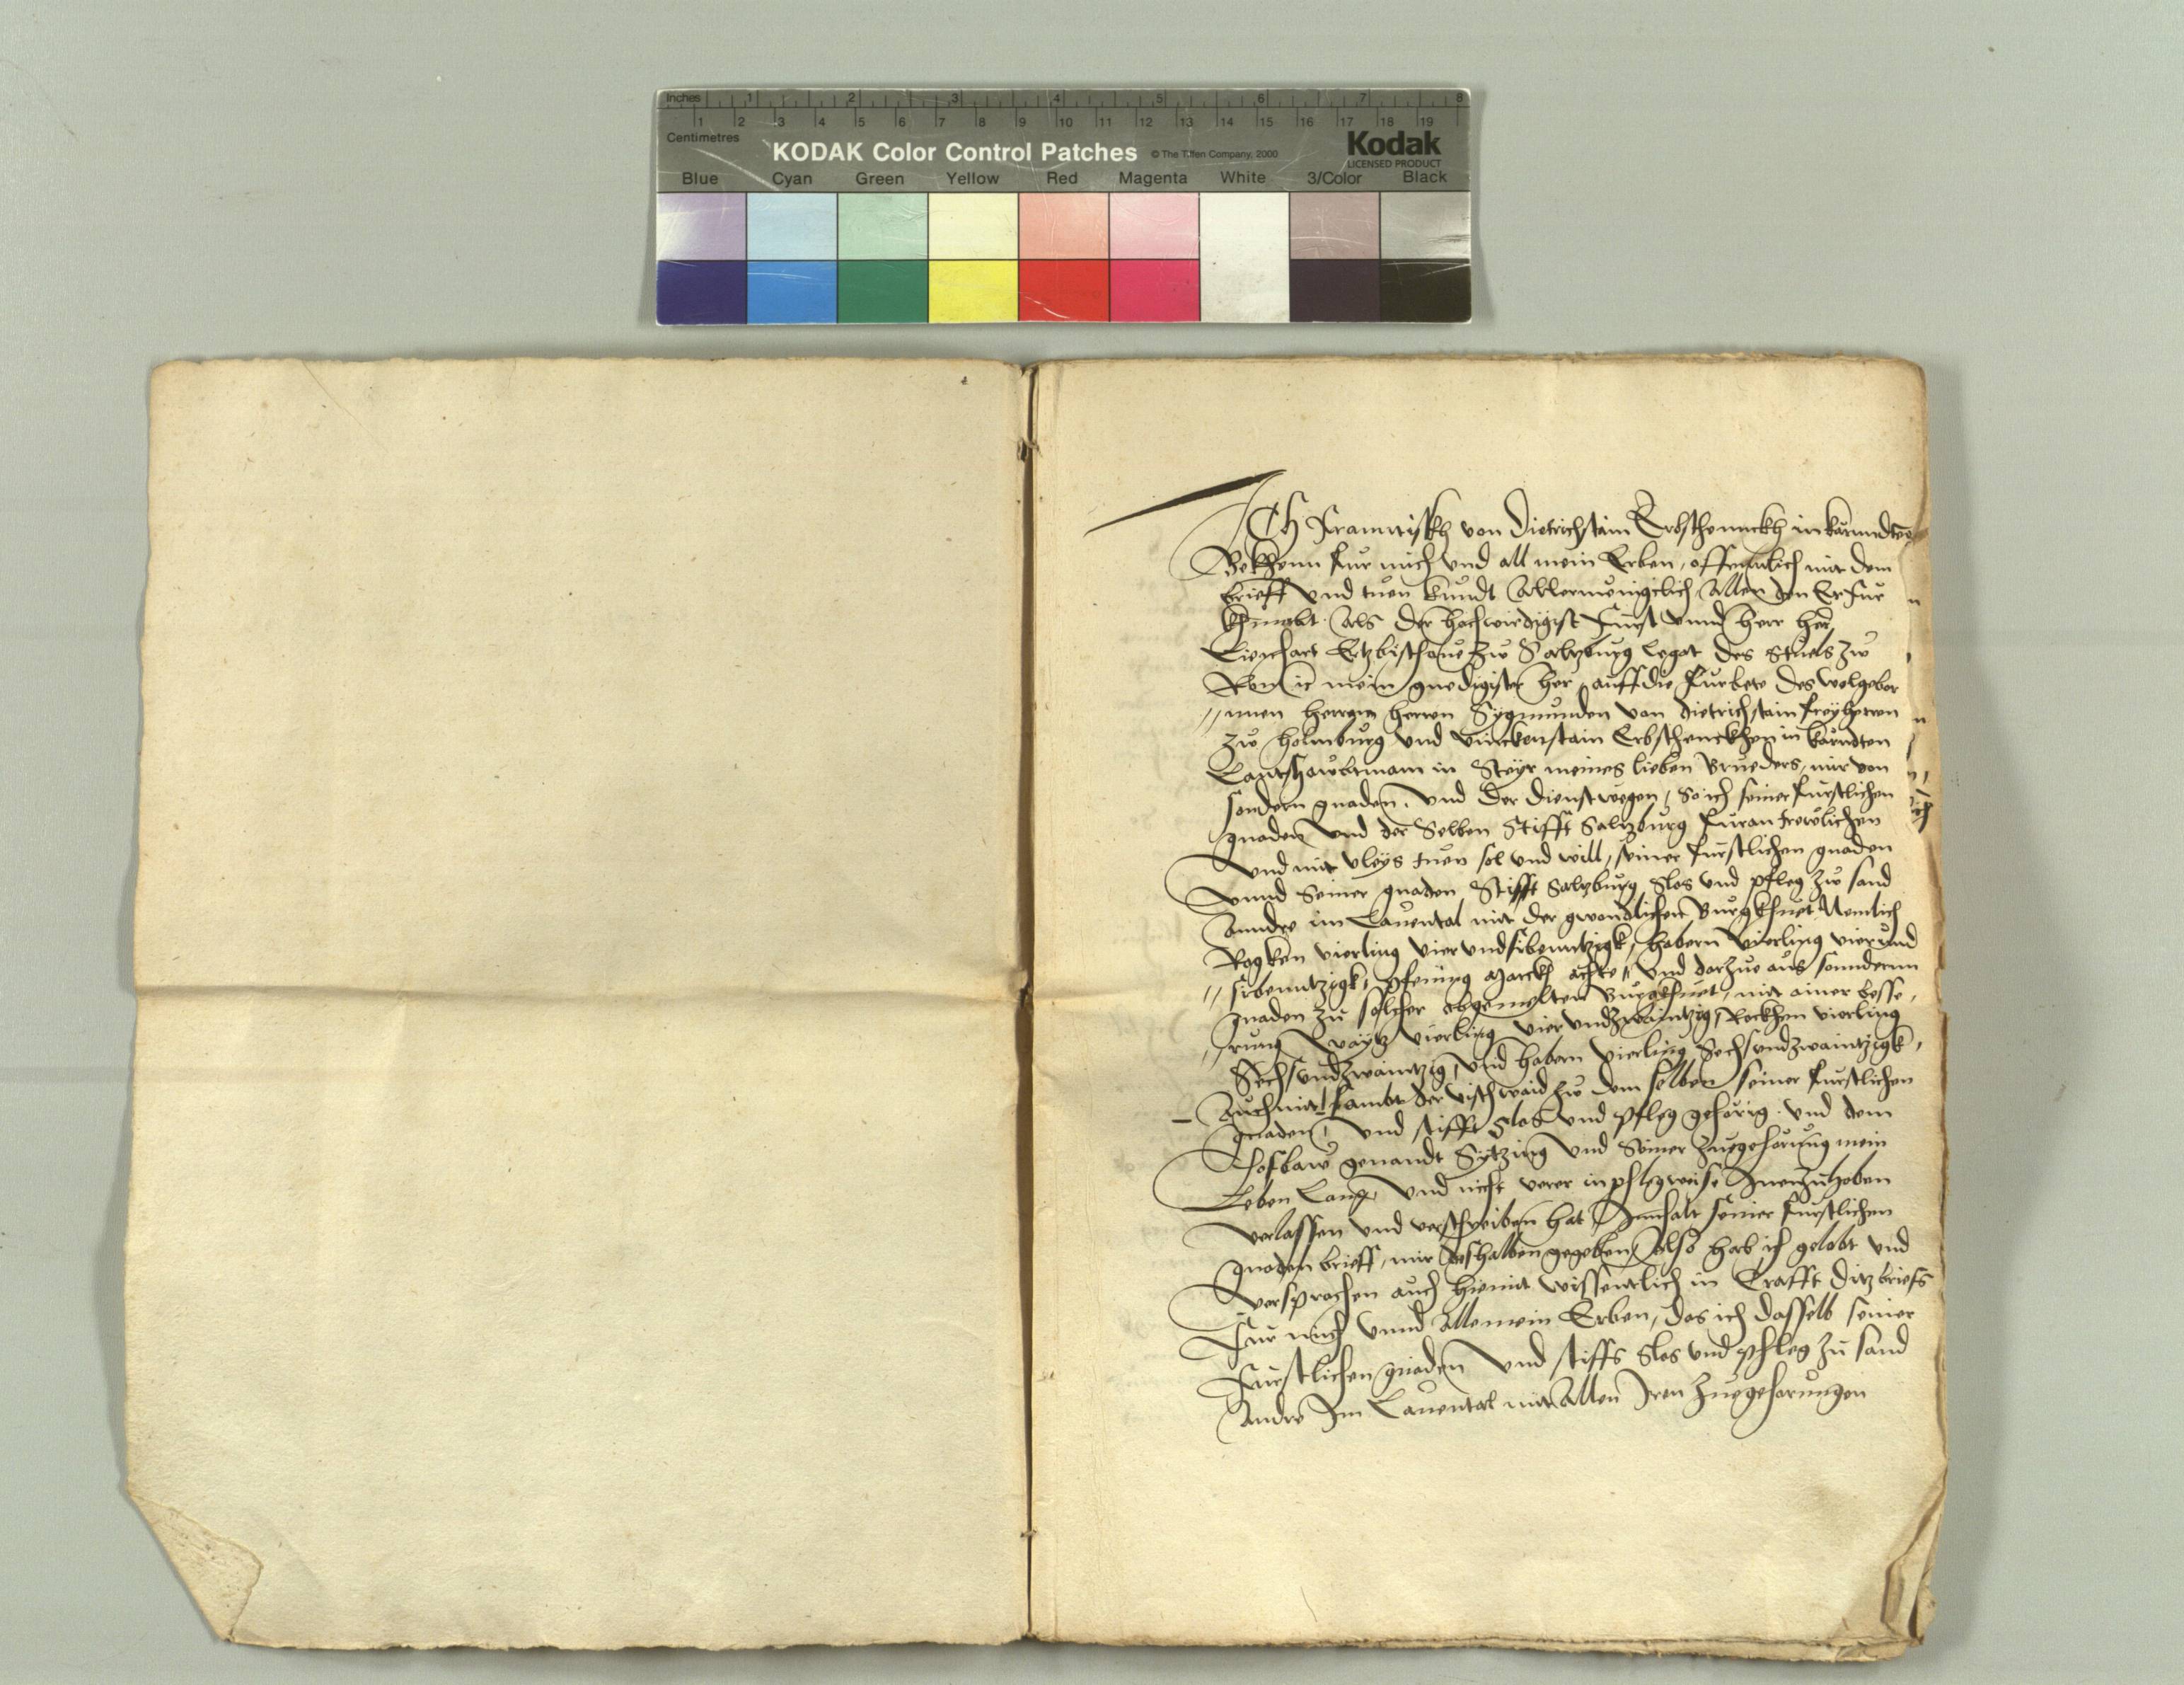 Inches 1 2 3 4 5 6 7 8
1 2 3 4 5 6 7 8 9 10 11 12 13 14 15 16 17 18 19
Centimetres
KODAK Color Control Patches © The Tiffen Company, 2000 Kodak
LICENSED PRODUCT
Blue Cyan Green Yellow Red Magenta White 3/Color Black
Ich Franntziskh von Dietrichstain Erbschennckh in kärnndten
Bekhenn fur mich vnd all mein Erben, offenntlich mit dem
brieff vnd tuen kundt Allermeinigclich Allen den Er fur
khumbt. Als der hochwirdigist Fürst vnnd herr her
Lienhart Ertzbischove zw Saltzburg legat des Stuels zw
Rom ic mein gnedigister her, auff die furbete des wolgebor
//nnen herren herren Sygmunden von dietrichstain freyherren
zw holnburg vnd vinckenstain Erbschenckhen in karndten
Lantshawbtman in Steyr meines lieben Brueders, mir von
sondern gnaden, vnd der dienst wegen, So ich seiner furstlichen
gnaden vnd der Selben Stifft Saltzburg furan trewlichen
vnd mit vleys tuen sol vnd will, seiner furstlichen gnaden
vnnd Seiner gnaden Stifft Saltzburg Slos vnd pfleg zw sand
Anndre im Lauental mit der gwondlichen Burgkhuet, Nemlich
Rogken vierling vier vnd sibenntzigk, habern vierling vier vnd
//sibenntzigk, pfening Marckh achte, vnd darzue aus sonnderrn
gnaden zu solcher obgemelten Burgkhuet, mit ainer besse,
//rung Waytz vierling vier vnd zwaintzig, Rockhen vierling
Sechs vnd zwaintzig, vnd habern vierling Sechs vnd zwaintzigk,
Auch mit sambt der vischwaid zw dem selben seiner furstlichen
gnaden, vnd stifft Slos vnd pfleg gehörig. vnd dem
hofbaw genandt Sytzing vnd Seiner zuegehörung mein
Leben Lang, vnd nicht verer in pflegweise Innzuhaben
verlassen vnd verschreiben hat, Innhalt seiner furstlichen
gnaden brieff, mir deshalben gegeben, Also hab ich gelobt vnd
versprochen auch hiemit wissentlich in Crafft ditz briefs
Fur mich vnnd Alle mein Erben, das ich dasselb seiner
Furstlichen gnaden vnd stiffs Slos vnd pfleg zu sand
Andre Im Lauental mit Allen Iren zuegehorungen